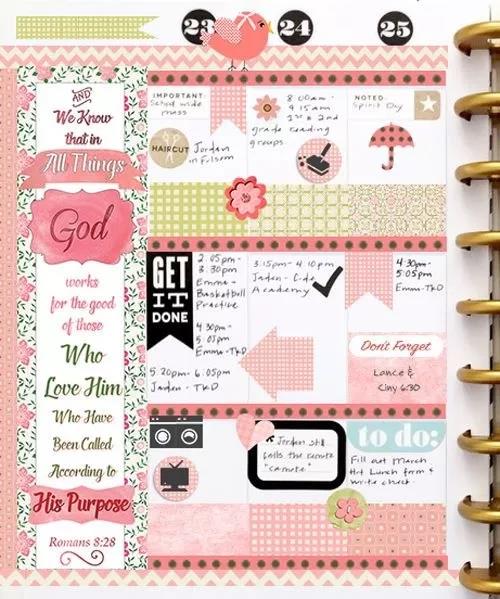 23
24
25
AND
We Know
that in
All Things
God
works
for the good
of those
Who
Love Him
Who Have
Been Called
According to
His Purpose
Romans 8:28
IMPORTANT:
School wide
mass
HAIRCUT
Jordan
in Folsom
8:00am-
9:15am
1st & 2nd
grade reading
groups
NOTED:
Spirit Day
GET
IT
DONE
2:05pm-
3:30pm
Emma-
Basketball
Practice
4:30pm-
5:05pm
Emma-TKD
5:20pm-6:05pm
Jordan-TKD
3:15pm-4:10pm
Jaden- Code
Academy
4:30pm-
5:05pm
Emma-TKD
Don't Forget
Lance &
Ciny 6:30
* Jordan still
calls the remote
"ca-mote"
to do:
Fill out March
Hot Lunch form &
write check